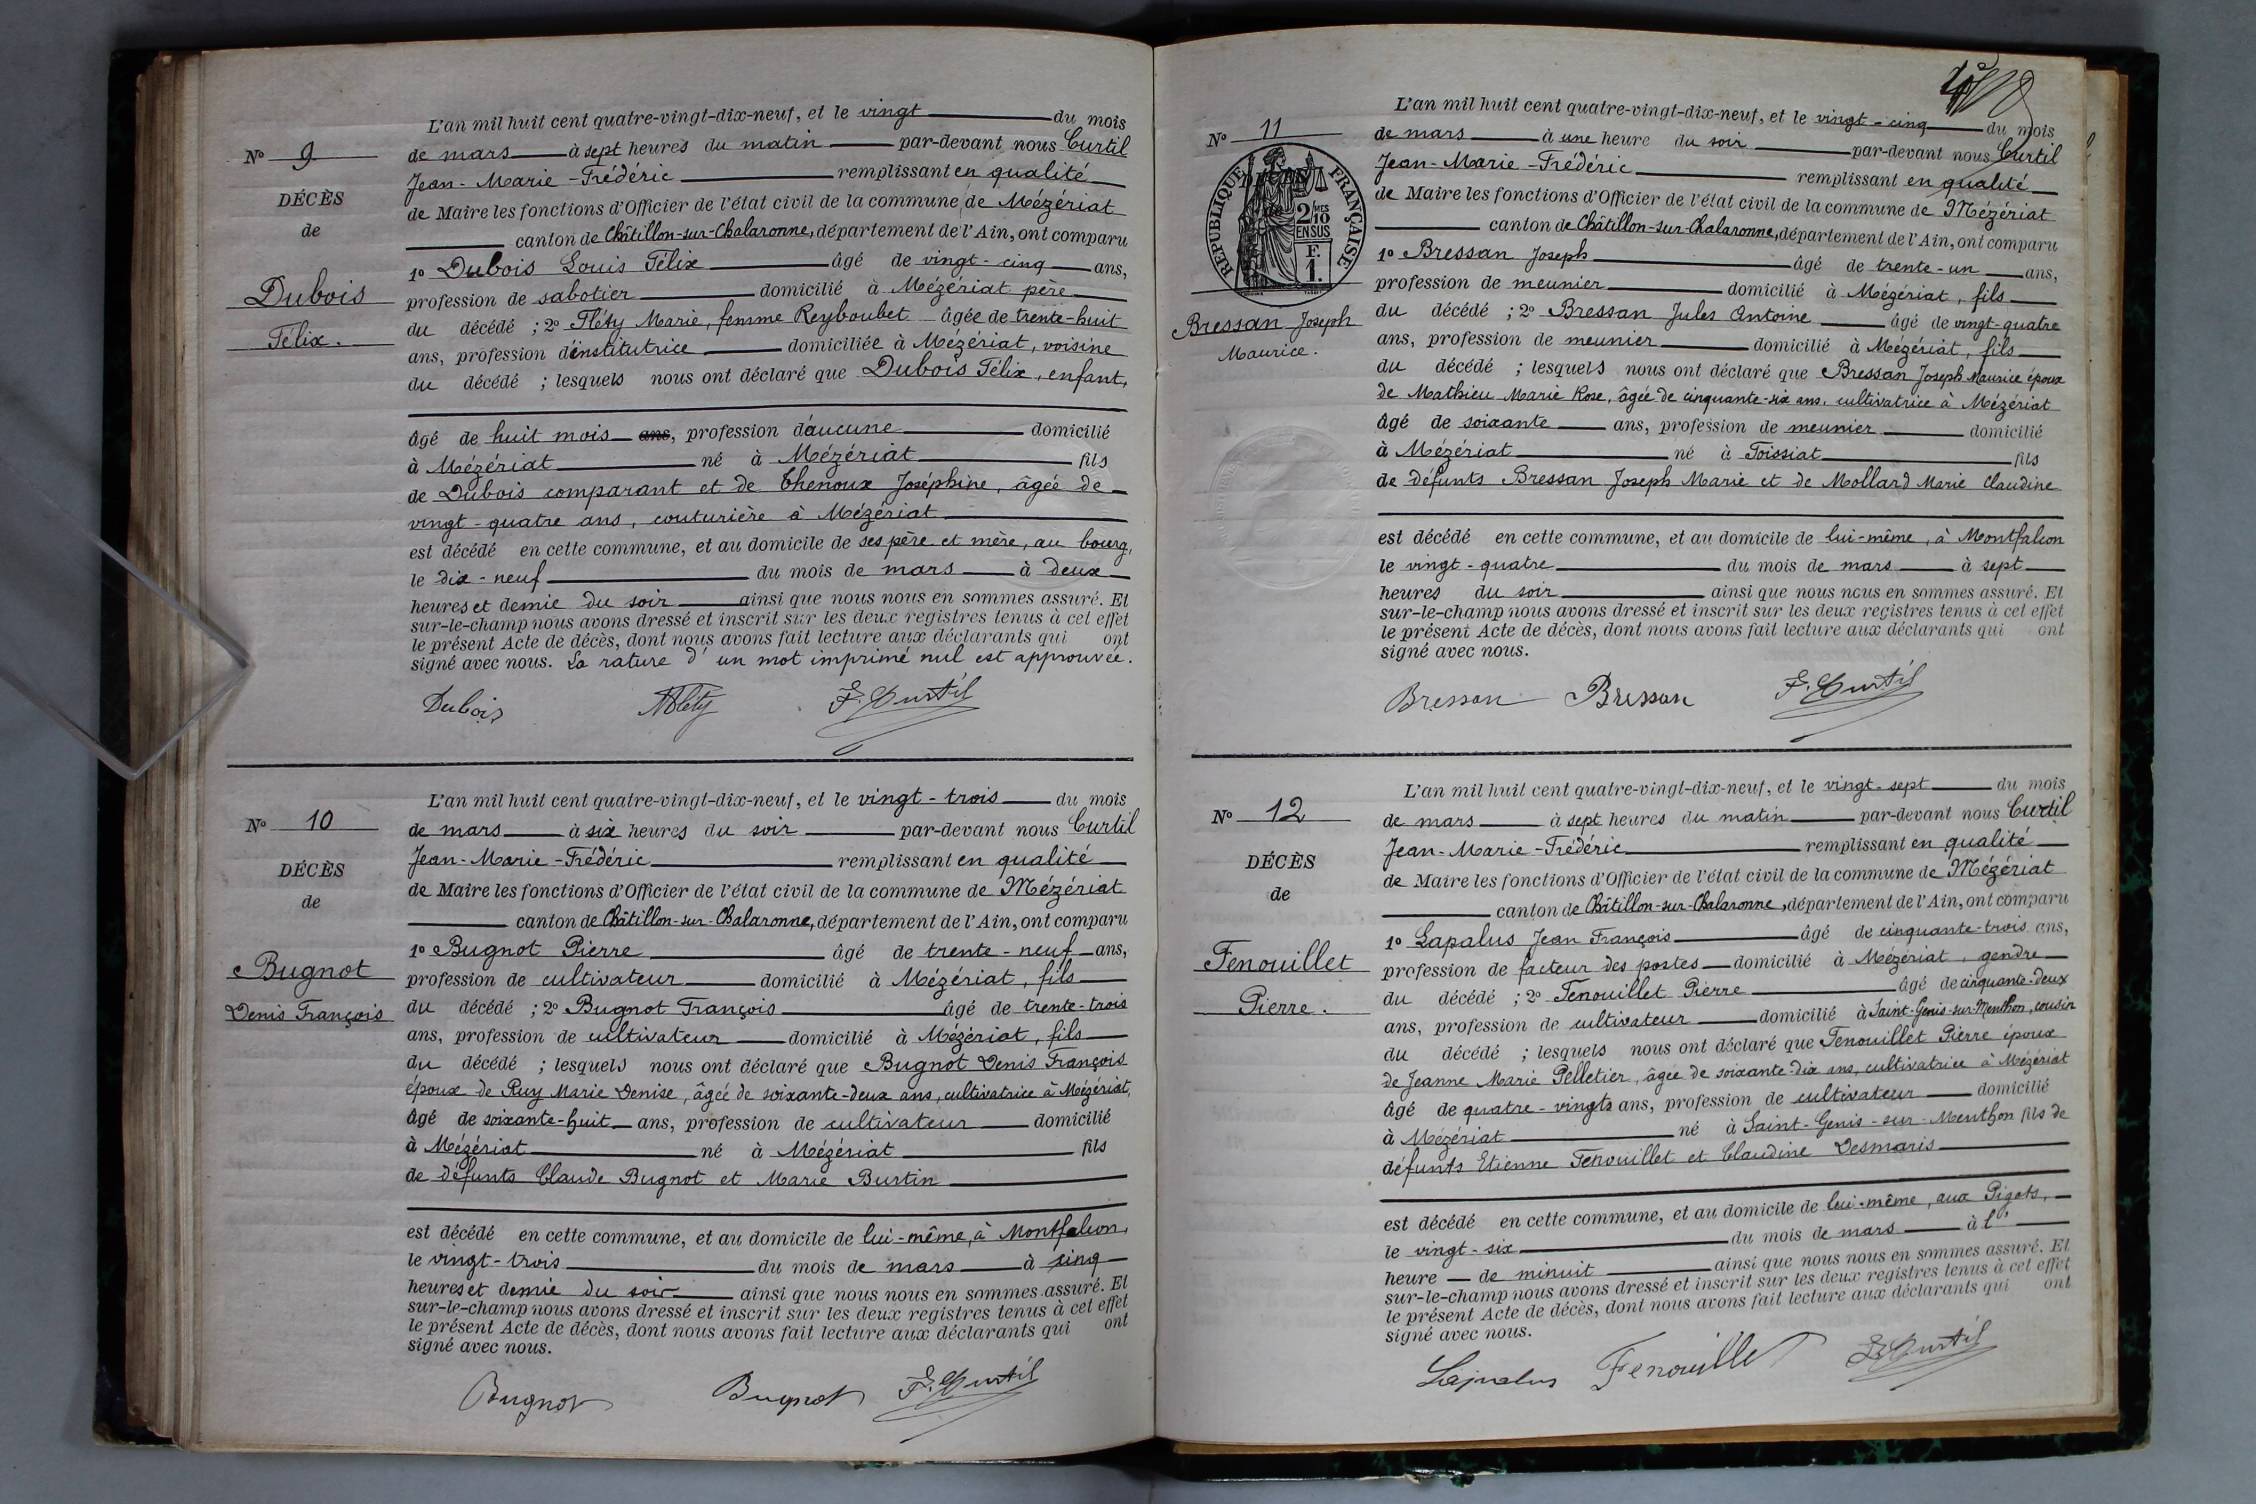 L'an mil huit cent quatre-vingt-dix-neuf, et le vingt du mois
N° 9
de mars à sept heures du matin par-devant nous Curtil
Jean-Marie-Frédéric remplissant en qualité
DÉCÈS
de Maire les fonctions d'Officier de l'état civil de la commune de Mézériat
de
canton de Châtillon-sur-Chalaronne, département de l'Ain, ont comparu
1° Dubois Louis Félix âgé de vingt-cinq ans,
Dubois
profession de sabotier domicilié à Mézériat père
Félix.
du décédé ; 2° Fléty Marie, femme Reyboubet âgée de trente-huit
ans, profession d'institutrice domiciliée à Mézériat, voisine
du décédé ; lesquels nous ont déclaré que Dubois Félix, enfant,
âgé de huit mois ans, profession d'aucune domicilié
à Mézériat né à Mézériat fils
de Dubois comparant et de Thenoux Joséphine, âgée de
vingt-quatre ans, couturière à Mézériat
est décédé en cette commune, et au domicile de ses père et mère, au bourg,
le dix-neuf du mois de mars à deux
heures et demie du soir ainsi que nous nous en sommes assuré. Et
sur-le-champ nous avons dressé et inscrit sur les deux registres tenus à cet effet
le présent Acte de décès, dont nous avons fait lecture aux déclarants qui ont
signé avec nous. La rature d'un mot imprimé nul est approuvée.
Dubois Fléty F. Curtil
L'an mil huit cent quatre-vingt-dix-neuf, et le vingt-trois du mois
N° 10
de mars à six heures du soir par-devant nous Curtil
Jean-Marie-Frédéric remplissant en qualité
DÉCÈS
de Maire les fonctions d'Officier de l'état civil de la commune de Mézériat
de
canton de Châtillon-sur-Chalaronne, département de l'Ain, ont comparu
1° Bugnot Pierre âgé de trente-neuf ans,
Bugnot
profession de cultivateur domicilié à Mézériat, fils
Denis François
du décédé ; 2° Bugnot François âgé de trente-trois
ans, profession de cultivateur domicilié à Mézériat, fils
du décédé ; lesquels nous ont déclaré que Bugnot Denis François
époux de Puy Marie Denise, âgée de soixante-deux ans, cultivatrice à Mézériat,
âgé de soixante-huit ans, profession de cultivateur domicilié
à Mézériat né à Mézériat fils
de défunts Claude Bugnot et Marie Burtin
est décédé en cette commune, et au domicile de lui-même, à Montfalcon,
le vingt-trois du mois de mars à cinq
heures et demie du soir ainsi que nous nous en sommes assuré. Et
sur-le-champ nous avons dressé et inscrit sur les deux registres tenus à cet effet
le présent Acte de décès, dont nous avons fait lecture aux déclarants qui ont
signé avec nous.
Bugnot Bugnot F. Curtil
L'an mil huit cent quatre-vingt-dix-neuf, et le vingt-cinq du mois
N° 11
de mars à une heure du soir par-devant nous Curtil
Jean-Marie-Frédéric remplissant en qualité
RÉPUBLIQUE FRANÇAISE
2/10MES
EN SUS
F.
1.
de Maire les fonctions d'Officier de l'état civil de la commune de Mézériat
canton de Châtillon-sur-Chalaronne, département de l'Ain, ont comparu
1° Bressan Joseph âgé de trente-un ans,
profession de meunier domicilié à Mézériat, fils
Bressan Joseph
Maurice.
du décédé ; 2° Bressan Jules Antoine âgé de vingt-quatre
ans, profession de meunier domicilié à Mézériat, fils
du décédé ; lesquels nous ont déclaré que Bressan Joseph Maurice époux
de Mathieu Marie Rose, âgée de cinquante-six ans, cultivatrice à Mézériat
âgé de soixante ans, profession de meunier domicilié
à Mézériat né à Foissiat fils
de défunts Bressan Joseph Marie et de Mollard Marie Claudine
est décédé en cette commune, et au domicile de lui-même, à Montfalcon
le vingt-quatre du mois de mars à sept
heures du soir ainsi que nous nous en sommes assuré. Et
sur-le-champ nous avons dressé et inscrit sur les deux registres tenus à cet effet
le présent Acte de décès, dont nous avons fait lecture aux déclarants qui ont
signé avec nous.
Bressan Bressan F. Curtil
L'an mil huit cent quatre-vingt-dix-neuf, et le vingt-sept du mois
N° 12
de mars à sept heures du matin par-devant nous Curtil
Jean-Marie-Frédéric remplissant en qualité
DÉCÈS
de Maire les fonctions d'Officier de l'état civil de la commune de Mézériat
de
canton de Châtillon-sur-Chalaronne, département de l'Ain, ont comparu
1° Lapalus Jean François âgé de cinquante-trois ans,
Fenouillet
profession de facteur des postes domicilié à Mézériat, gendre
Pierre.
du décédé ; 2° Fenouillet Pierre âgé de cinquante-deux
ans, profession de cultivateur domicilié à Saint-Genis-sur-Menthon, cousin
du décédé ; lesquels nous ont déclaré que Fenouillet Pierre époux
de Jeanne Marie Pelletier, âgée de soixante-dix ans, cultivatrice à Mézériat
âgé de quatre-vingts ans, profession de cultivateur domicilié
à Mézériat né à Saint-Genis-sur-Menthon fils de
défunts Etienne Fenouillet et Claudine Desmaris
est décédé en cette commune, et au domicile de lui-même, aux Pigots,
le vingt-six du mois de mars à l'
heure de minuit ainsi que nous nous en sommes assuré. Et
sur-le-champ nous avons dressé et inscrit sur les deux registres tenus à cet effet
le présent Acte de décès, dont nous avons fait lecture aux déclarants qui ont
signé avec nous.
Lapalus Fenouillet F. Curtil